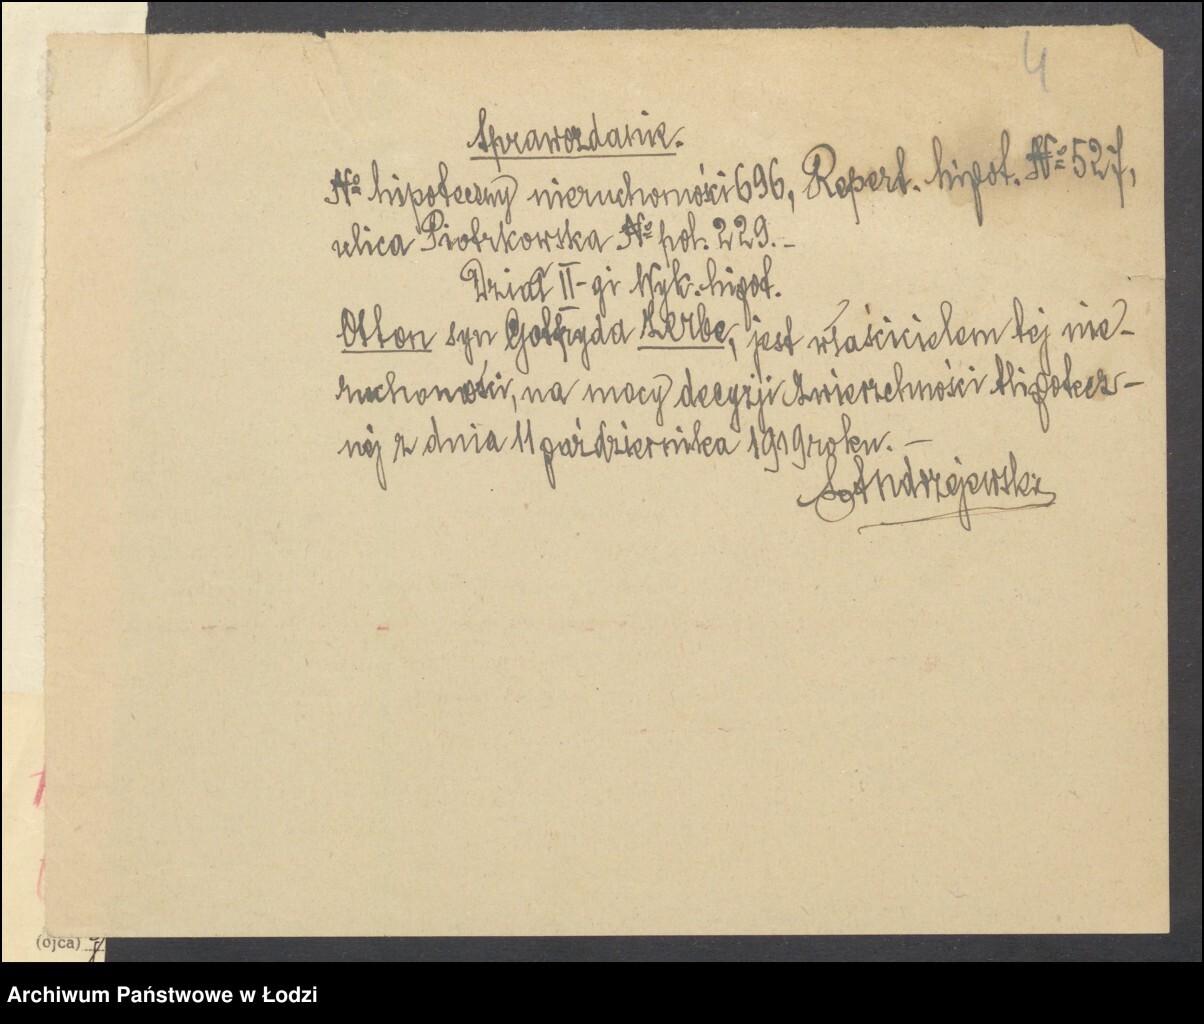 4
Sprawozdanie.
№ hipoteczny nieruchomości 696, Repert. hipot. № 527,
ulica Piotrkowska № pol. 229.–
Dział II-gi Wyk. hipot.
Otton syn Gotfryda Zerbe, jest właścicielem tej nie-
ruchomości, na mocy decyzji Zwierzchności Hipotecz-
nej z dnia 11 października 1919 roku. –
Andrzejewski
(ojca)
Archiwum Państwowe w Łodzi